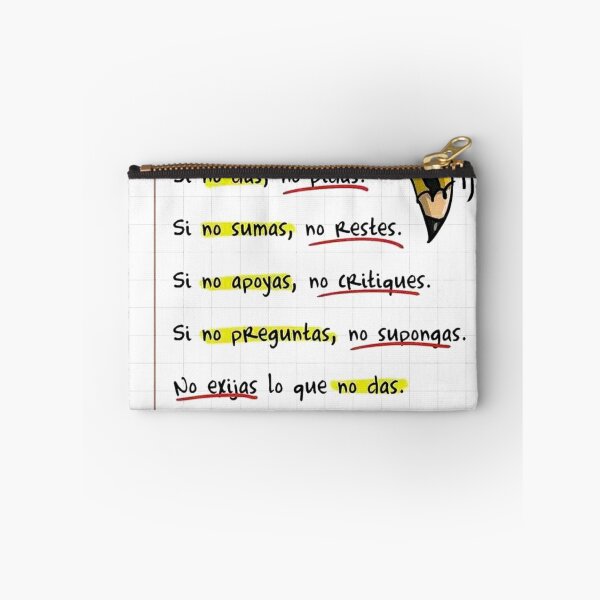 Si no das, no pidas.
Si no sumas, no Restes.
Si no apoyas, no critiques.
Si no preguntas, no supongas.
No exijas lo que no das.